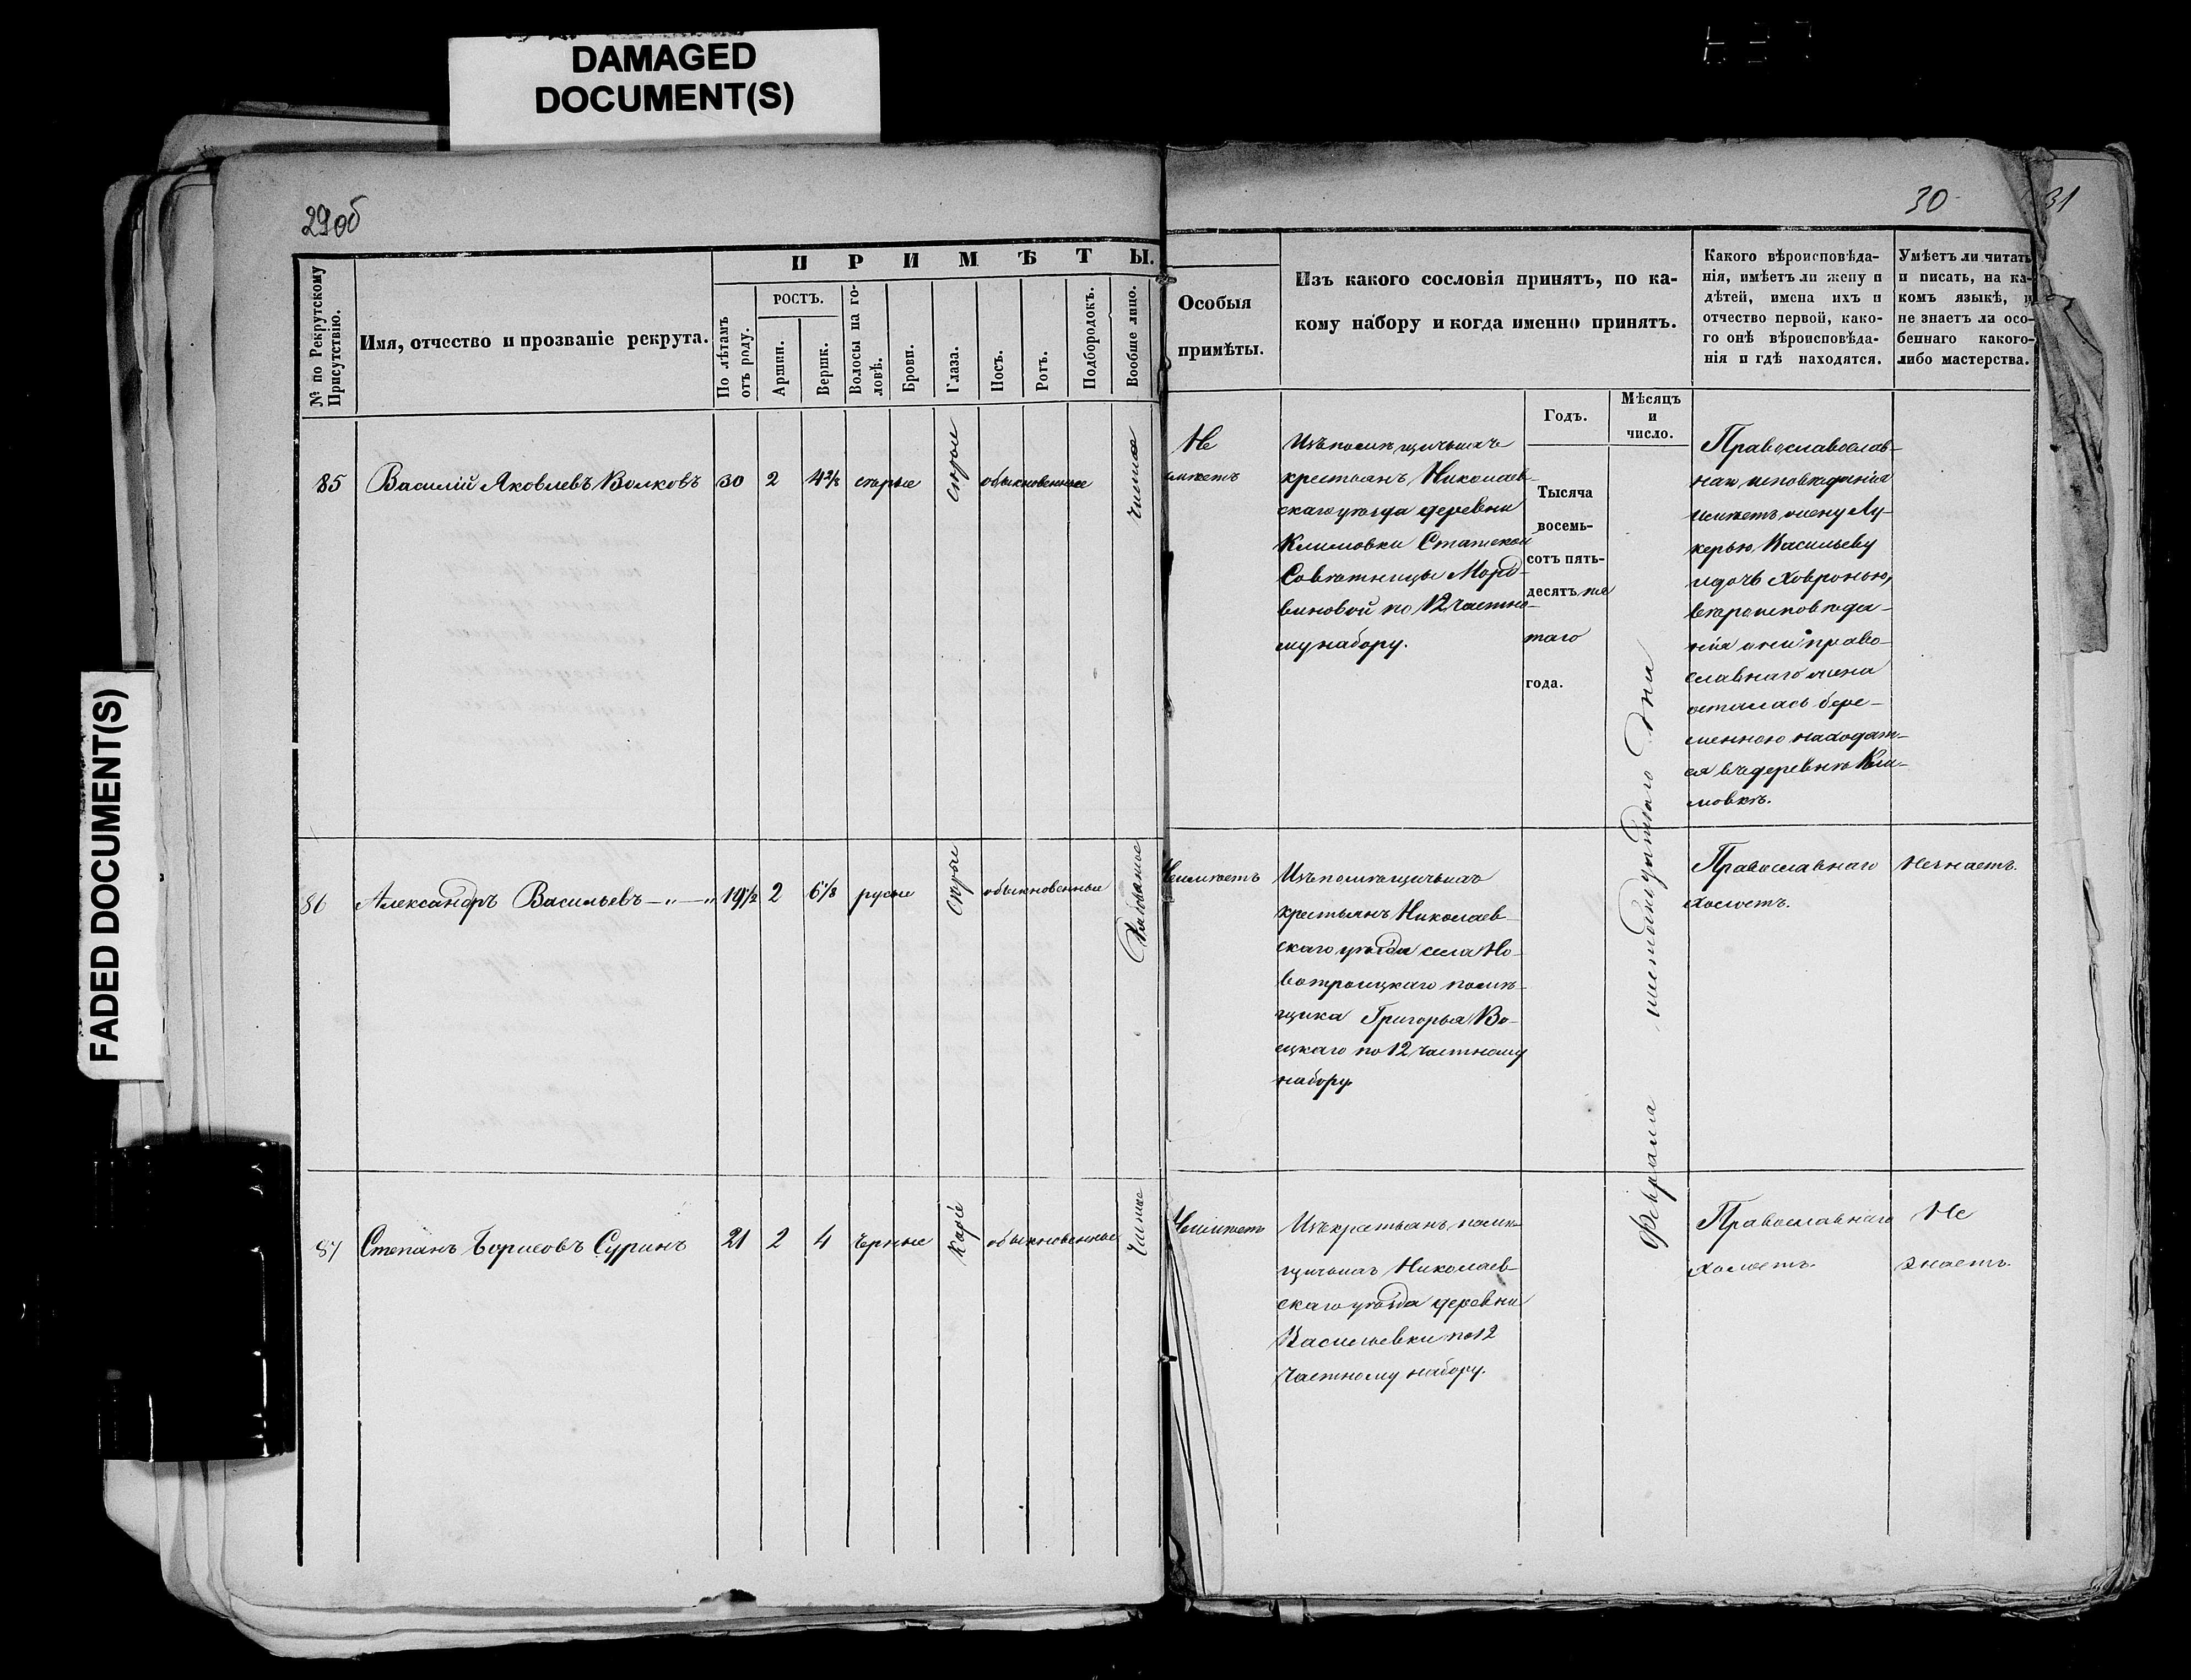 DAMAGED
DOCUMENT(S)
FADED DOCUMENT(S)
29об
30
31
№ по Рекрутскому Присутствію.
Имя, отчество и прозваніе рекрута.
ПРИМѢТЫ.
По лѣтамъ отъ роду.
РОСТЪ.
Аршин.
Вершк.
Волосы на го-
ловѣ.
Брови.
Глаза.
Носъ.
Ротъ.
Подбородокъ.
Вообще лицо.
Особыя
примѣты.
Изъ какого сословія принятъ, по ка-
кому набору и когда именно принятъ.
Годъ.
Мѣсяцъ
и
число.
Какого вѣроисповѣда-
нія, имѣетъ ли жену и
дѣтей, имена ихъ и
отчество первой, како-
го онѣ вѣроисповѣда-
нія и гдѣ находятся.
Умѣетъ ли читать
и писать, на ка-
комъ языкѣ, и
не знаетъ ли осо-
беннаго какого-
либо мастерства.
85
Василій Яковлевъ Волковъ
30
2
4 2/8
сѣрые
сѣрые
обыкновенные
чистое
Не
имѣетъ
Изъ помѣщичьихъ
крестьянъ, Николаев-
скаго уѣзда деревни
Климовки Статской
Совѣтницы Морд-
виновой по 12 частно-
му набору.
Тысяча
восемь-
сотъ пять-
десятъ пя
таго
года.
Февраля шестнадцатаго дня
Православослав-
наго исповѣданія
имѣетъ жену Лу-
керью Васильеву
и дочь Ховронью,
вѣроисповѣда-
нія они право-
славнаго жена
осталась бере-
менною находят-
ся въ деревнѣ Кли-
мовкѣ.
86
Александръ Васильевъ — „ — „
19 1/2
2
6 1/8
русые
сѣрые
обыкновенные
Неимѣетъ
Изъ помѣщичьихъ
крестьянъ Николаев-
скаго уѣзда села Но-
вотроицкаго помѣ-
щика Григорья Во-
ецкаго по 12 частному
набору
Православнаго
холостъ.
Незнаетъ.
87
Степанъ Борисовъ Суринъ
21
2
4
черные
каріе
обыкновенные
чистое
Неимѣетъ
Изъ крестьянъ помѣ-
щичьихъ Николаев-
скаго уѣзда деревни
Васильевки по 12
частному набору.
Православнаго
холостъ.
Не
знаетъ.